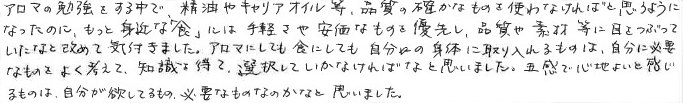 アロマの勉強をする中で、精油やキャリアオイル等、品質の確かなものを使わなければと思うように
なったのに、もっと身近な"食"には手軽さや安価なものを優先し、品質や素材等に目をつぶって
いたなと改めて気付きました。アロマにしても食にしても自分の身体に取り入れるものは、自分に必要
なものをよく考えて、知識を得て、選択していかなければなと思いました。五感で心地よいと感じ
るものは、自分が欲してるもの、必要なものなのかなと思いました。